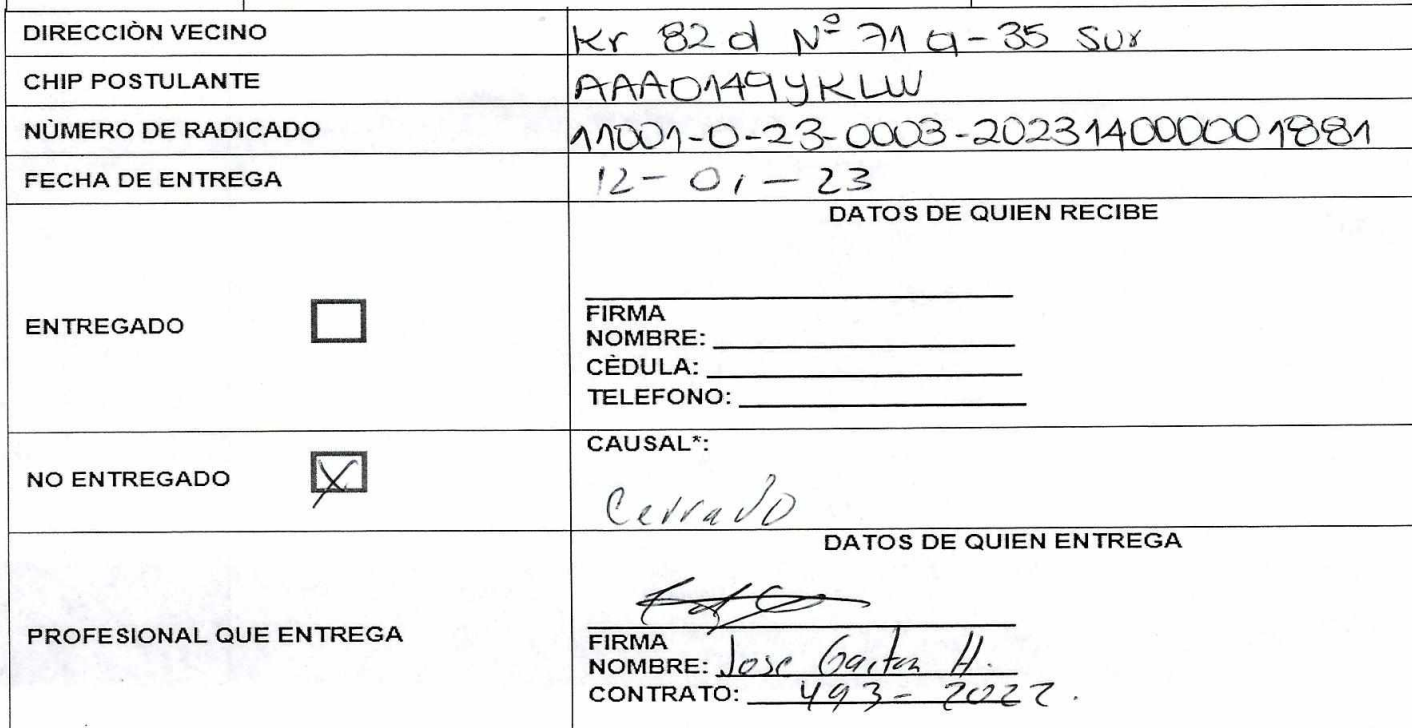 DIRECCIÒN VECINO Kr 82 d Nº 71 a - 35 Sur
CHIP POSTULANTE AAA0149YKLW
NÙMERO DE RADICADO 11001-0-23-0003-202314000001881
FECHA DE ENTREGA 12-01-23
DATOS DE QUIEN RECIBE
ENTREGADO
FIRMA
NOMBRE:
CÈDULA:
TELEFONO:
NO ENTREGADO X
CAUSAL*:
Cerrado
DATOS DE QUIEN ENTREGA
PROFESIONAL QUE ENTREGA
FIRMA
NOMBRE: Jose Gaitan H.
CONTRATO: 493-2022.